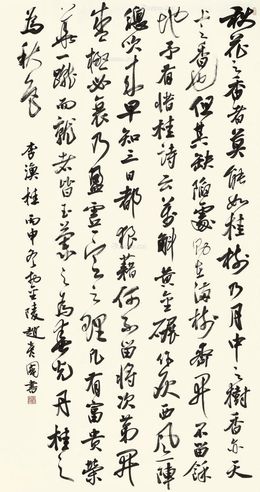 秋花之香者莫能如桂樹乃月中之樹香亦天
上之香也但其缺陷處則在滿樹齊開不留餘
地予有惜桂詩云萬斛黄金碾作灰西風一陣
總吹來早知三日都狼藉何不留將次第開
盛極必衰乃盈虛一定之理凡有富貴榮
華一蹴而就者皆玉蘭之為春光丹桂之
為秋色
李漁桂丙申冬於金陵趙書